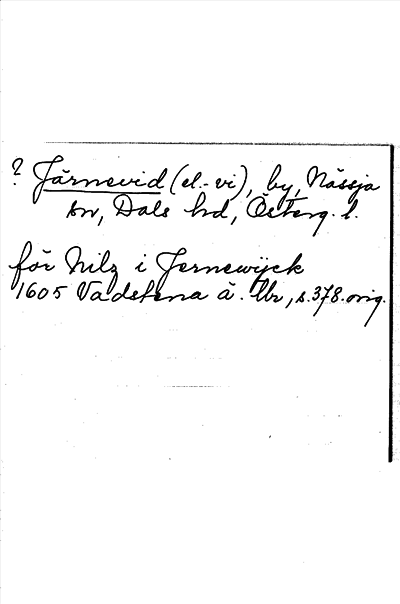 ? Järnevid (el. -vi), by, Nässja
sn, Dals hd, Österg. l.
för Nilz i Jernewijck
1605 Vadstena ä. Ubr, s. 378. orig.